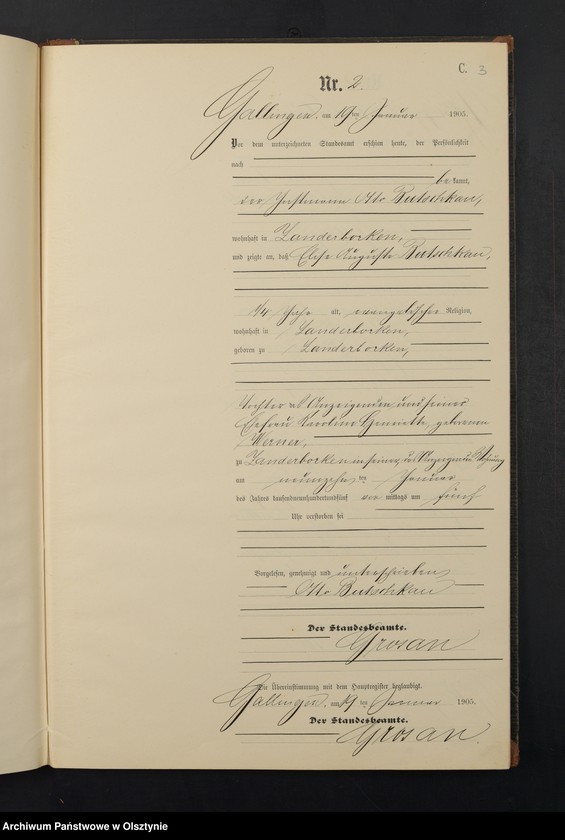 C. 3
Nr. 2.
Gallingen, am 19 ten Januar 1905.
Vor dem unterzeichneten Standesbeamten erschien heute, der Persönlichkeit
nach
bekannt,
der Instmann Otto Butschkau,
wohnhaft in Landerborken,
und zeigte an, daß Elise Auguste Butschkau,
1/4 Jahr alt, evangelischer Religion,
wohnhaft in Landerborken,
geboren zu Landerborken,
Tochter des Anzeigenden und seiner
Ehefrau Karoline Henriette, geborenen
Werner,
zu Landerborken in seiner, des Anzeigenden Wohnung
am neunzehn ten Januar
des Jahres tausendneunhundertundfünf vor mittags um fünf
Uhr verstorben sei
Vorgelesen, genehmigt und unterschrieben
Otto Butschkau
Der Standesbeamte.
Grosan
Die Übereinstimmung mit dem Hauptregister beglaubigt.
Gallingen, am 19 ten Januar 1905.
Der Standesbeamte.
Grosan.
Archiwum Państwowe w Olsztynie